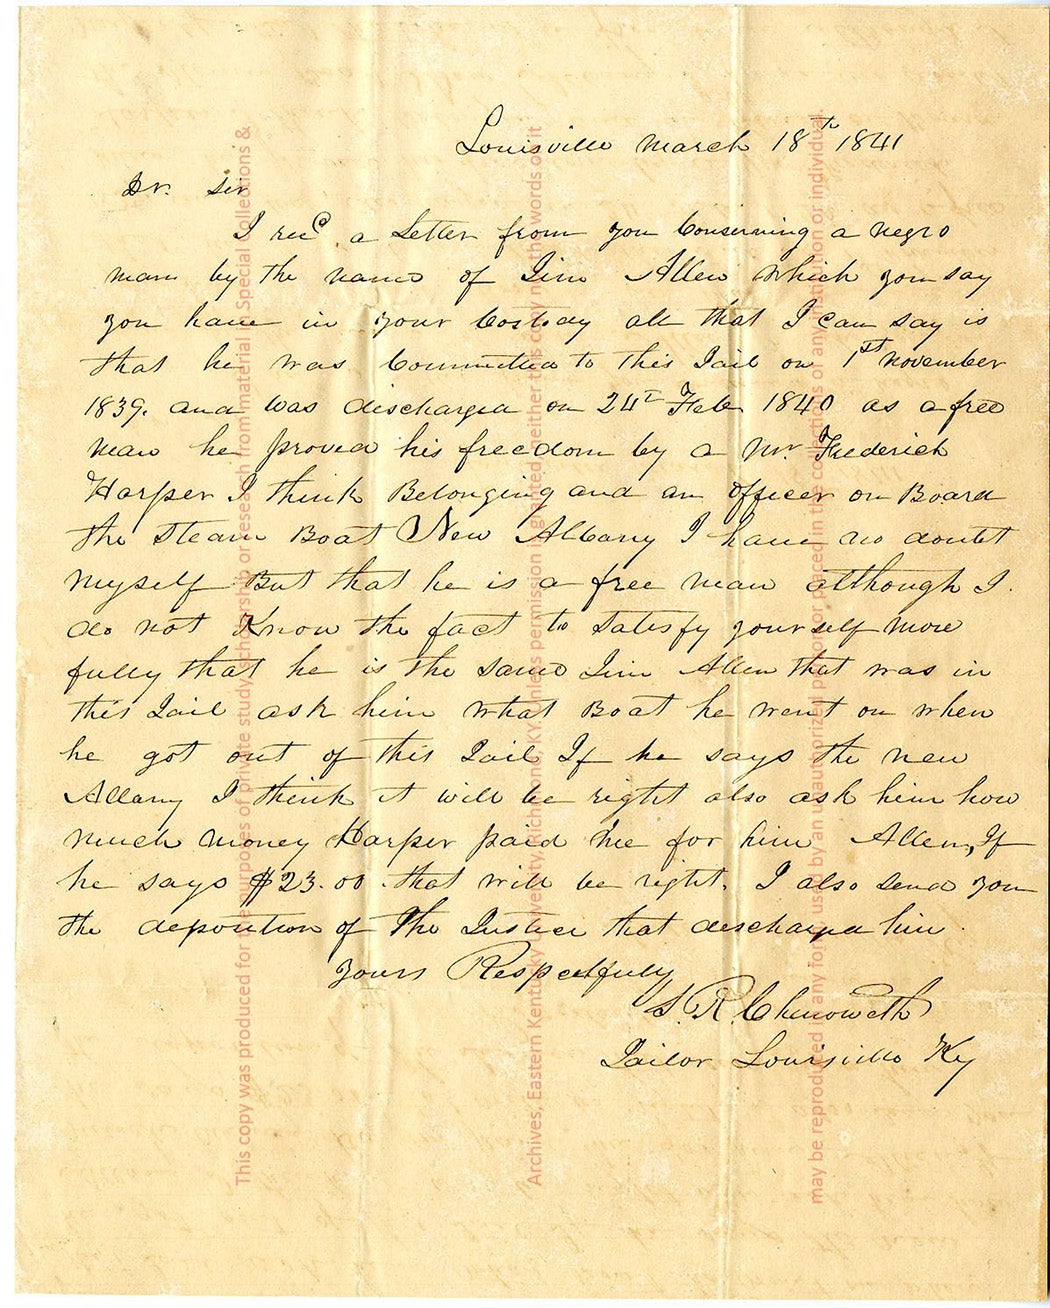 Louisville March 18th 1841
Dr. Sir
I recd a Letter from you Conserning a negro
man by the name of Jim Allen which you say
you have in your Costoday all that I can say is
that he was Committed to this Jail on 1st November
1839. and was discharged on 24th Feb 1840 as a free
man he proved his freedom by a Mr Frederick
Harper I think Belonging and an officer on Board
the Steam Boat New Albany I have no doubt
myself But that he is a free man although I
do not Know the fact to Satisfy yourself more
fully that he is the same Jim Allen that was in
this Jail ask him what Boat he went on when
he got out of this Jail If he says the new
Albany I think it will be right also ask him how
much money Harper paid me for him Allen, If
he says $23.00 that will be right. I also send you
the deposition of the Justice that descharged him.
yours Respectfuly
S. R. Chenoweth
Jailor Louisville Ky
This copy was produced for the purposes of private study, scholarship or research from material in Special Collections &
Archives, Eastern Kentucky University, Richmond, KY. Unless permission is granted, neither this copy nor the words on it
may be reproduced in any form, used by an unauthorized person or placed in the collections of any institution or individual.